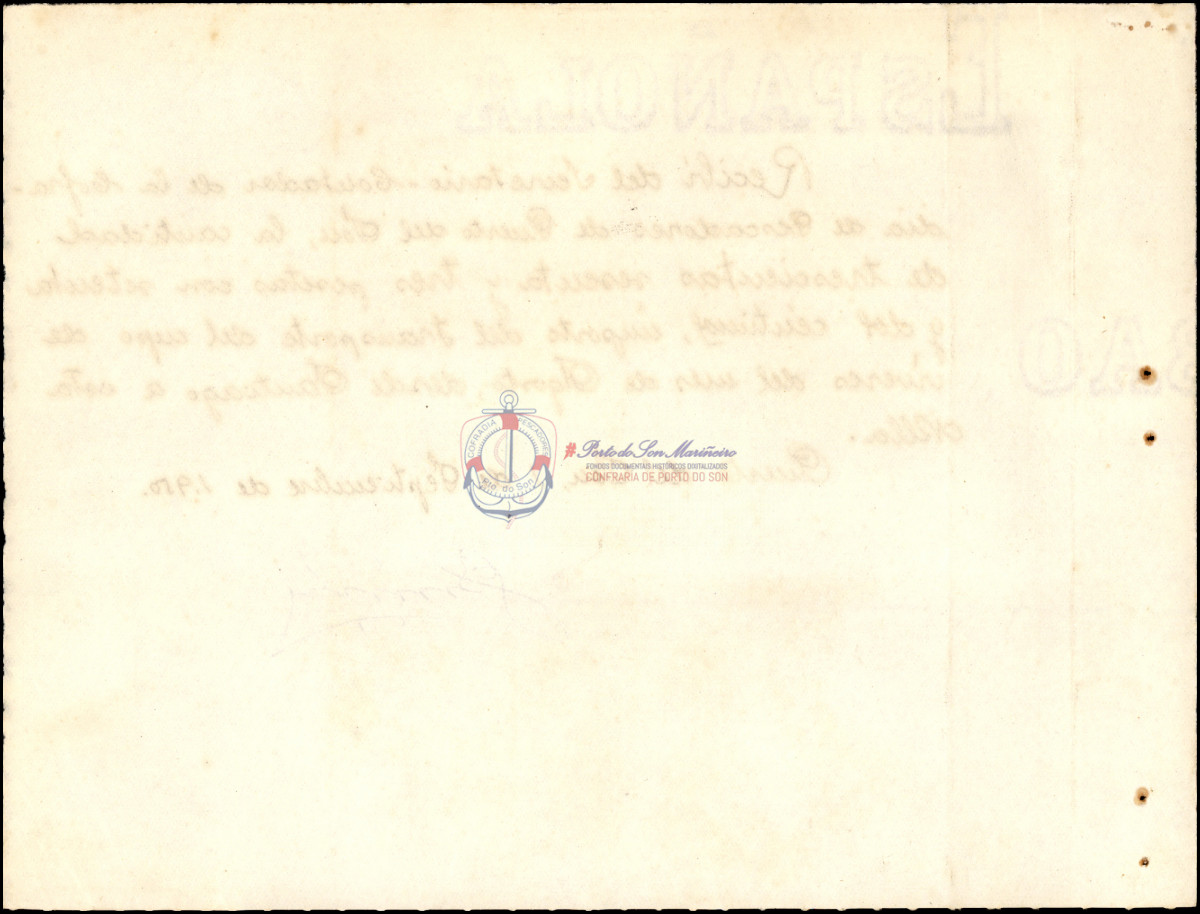 ESPAÑOLA
Recibí del Secretario-Contador de la Cofra-
dia de Pescadores de Puerto del Son, la cantidad
de trescientas sesenta y tres pesetas con setenta
y dos céntimos, importe del transporte del cupo de
víveres del mes de Agosto, desde Santiago a esta
villa.
Septiembre de 1.950.
BAO
COFRADIA PESCADORES
Pto. do Son
# Porto do Son Mariñeiro
FONDOS DOCUMENTAIS HISTÓRICOS DIXITALIZADOS
CONFRARÍA DE PORTO DO SON